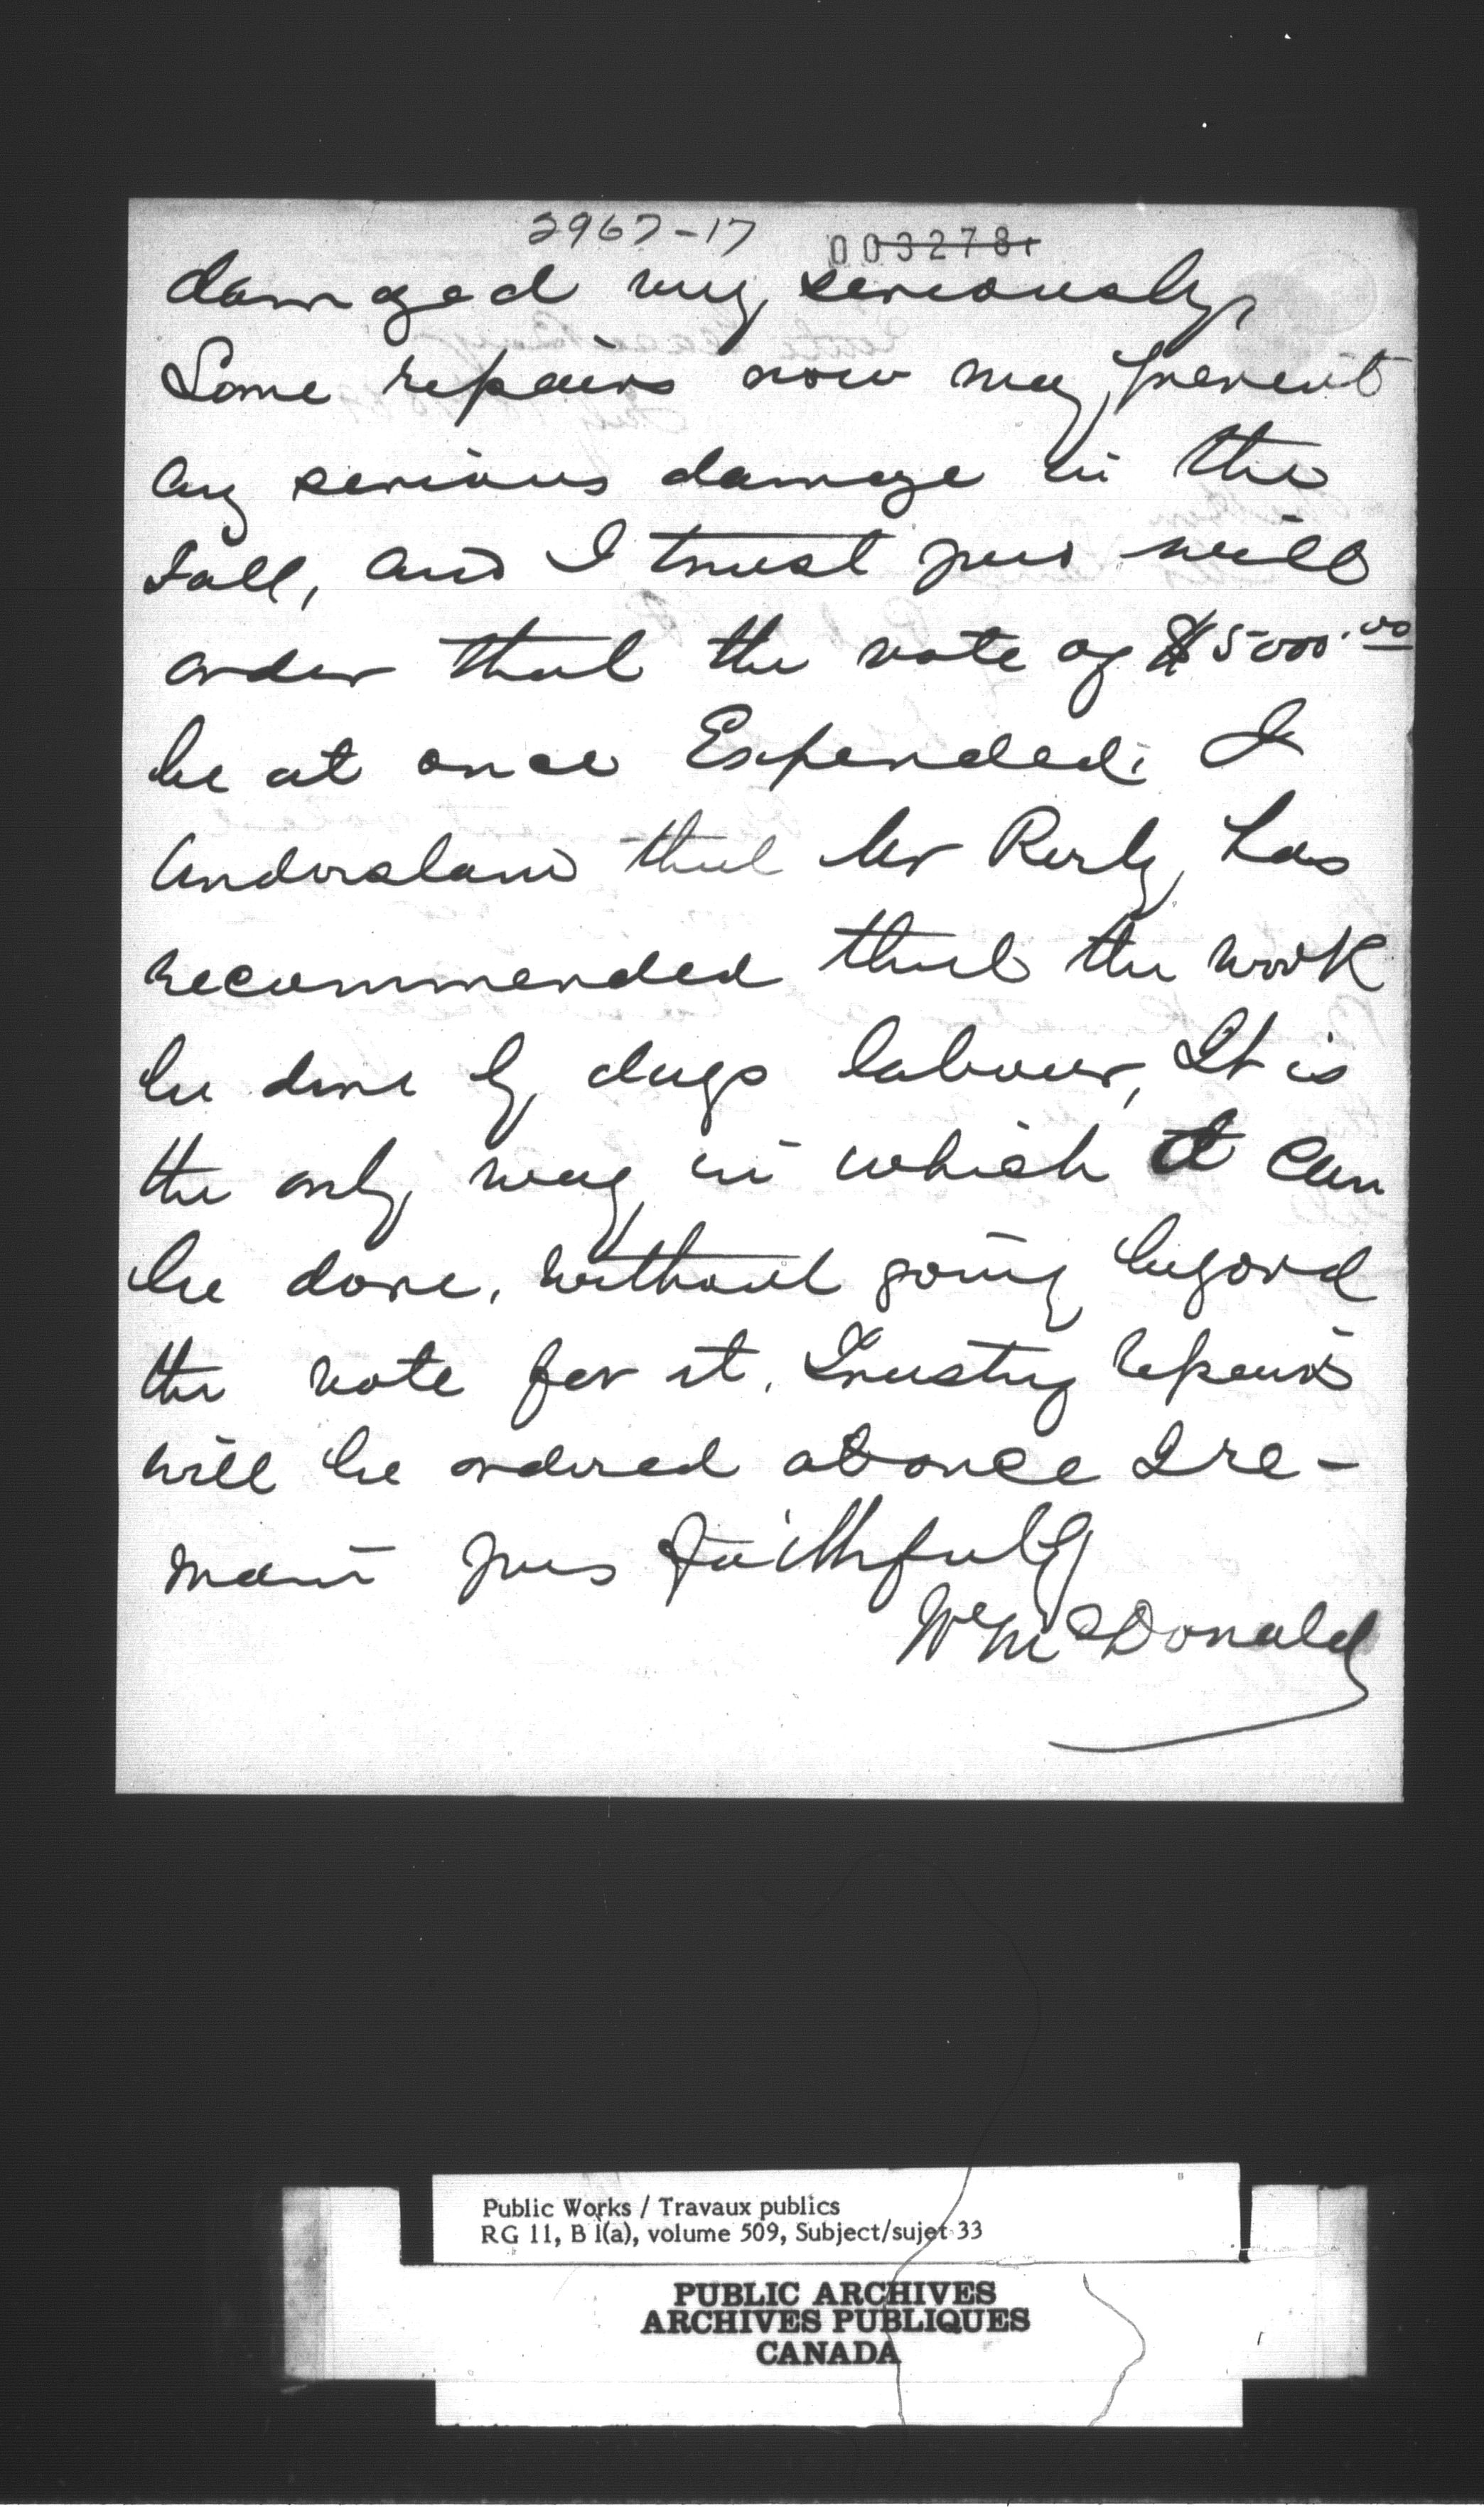 2967-17 003278
damaged very seriously,
Some repairs now may prevent
any serious damage in the
Fall, and I trust you will
order that the vote of $5000.00
be at once Expended. I
understand that Mr Perly has
recommended that the work
be done by days labour, It is
the only way in which it can
be done, without going beyond
the vote for it. Trusting repairs
will be ordered at once I re-
main yours faithfully
Wm McDonald
Public Works / Travaux publics
RG 11, B 1(a), volume 509, Subject/sujet 33
PUBLIC ARCHIVES
ARCHIVES PUBLIQUES
CANADA